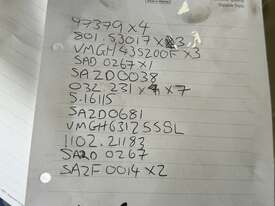 47379 x 4
801.53017 x 3
VMGH43S200F x 3
SAD 0267 x 1
SA2D0038
032.231 x 7
5.16115
SA2D0681
VMGH6312SSSL
1102.21183
SA2D 0267
SA2F0014 x 2